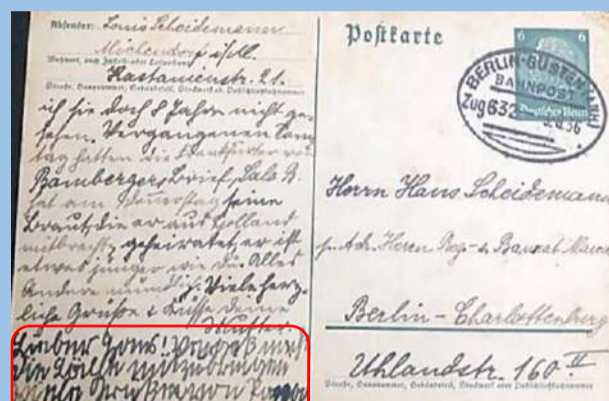 Absender: Louis Scheidemann
Michendorf i/M.
Wohnort, auch Zustell- oder Leitpostamt
Kastanienstr. 21.
Straße, Hausnummer, Gebäudeteil, Stockwerk od. Postschließfachnummer
ich sie doch 8 Jahre nicht ge-
sehen. Vergangenen Sams-
tag hatten die Frankfurter von
Bambergers Brief, Salo B.
hat am Donnerstag seine
Braut, die er aus Holland
mitbrachte, geheiratet, er ist
etwas jünger wie du. Alles
Andere mündlich. Viele herz-
liche Grüße & Küsse deine
Mutter.
Lieber Hans! Vergeß nicht
die mitzubringen
viele Grüße von Papa
Postkarte
6 6
Deutsches Reich
BERLIN-GÜSTEN (ANH)
BAHNPOST
Zug 632
Herrn Hans Scheidemann
p. Adr. Herrn Reg.- u. Baurat
Berlin-Charlottenburg
Uhlandstr. 160 II
Straße, Hausnummer, Gebäudeteil, Stockwerk oder Postschließfachnummer